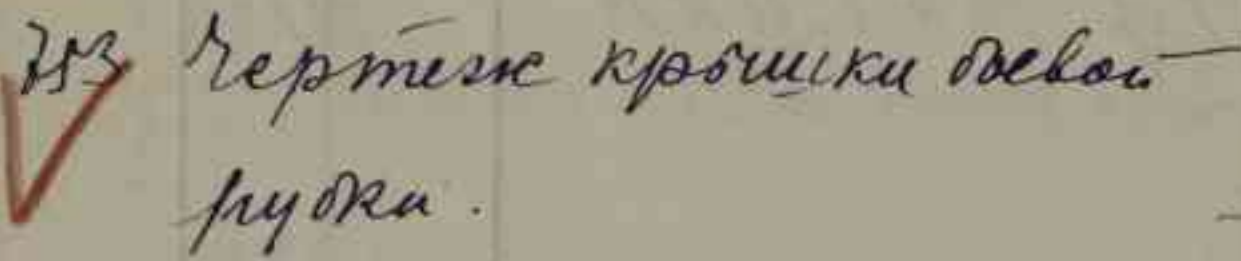 753 Чертеж крышки боевой
рубки.